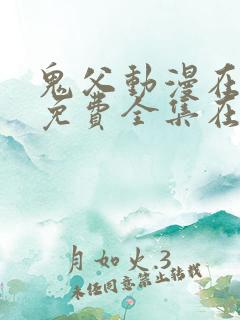 鬼父動漫在
免費全集在
月如火3
未经同意禁止转载